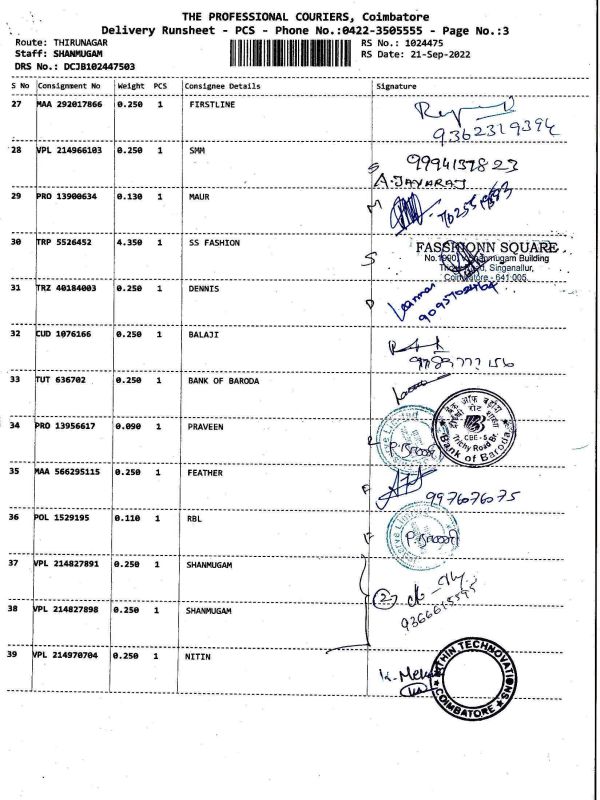 THE PROFESSIONAL COURIERS, Coimbatore
Delivery Runsheet - PCS - Phone No.:0422-3505555 - Page No.:3
Route: THIRUNAGAR RS No.: 1024475
Staff: SHANMUGAM RS Date: 21-Sep-2022
DRS No.: DCJB102447503
S No Consignment No Weight PCS Consignee Details Signature
27 MAA 292017866 0.250 1 FIRSTLINE
9362319394
28 VPL 214966103 0.250 1 SMM
9994137823
A.JAYARAJ
29 PRO 13900634 0.130 1 MAUR
30 TRP 5526452 4.350 1 SS FASHION
FASSHIONN SQUARE
Singanallur,
Coimbatore - 641 005.
31 TRZ 40184003 0.250 1 DENNIS
32 CUD 1076166 0.250 1 BALAJI
33 TUT 636702 0.250 1 BANK OF BARODA
CBE - 5
Trichy Road Br.
Bank of Baroda
34 PRO 13956617 0.090 1 PRAVEEN
35 MAA 566295115 0.250 1 FEATHER
9976076075
36 POL 1529195 0.110 1 RBL
37 VPL 214827891 0.250 1 SHANMUGAM
38 VPL 214827898 0.250 1 SHANMUGAM
39 VPL 214970704 0.250 1 NITIN
TECHNOVATIONS
COIMBATORE